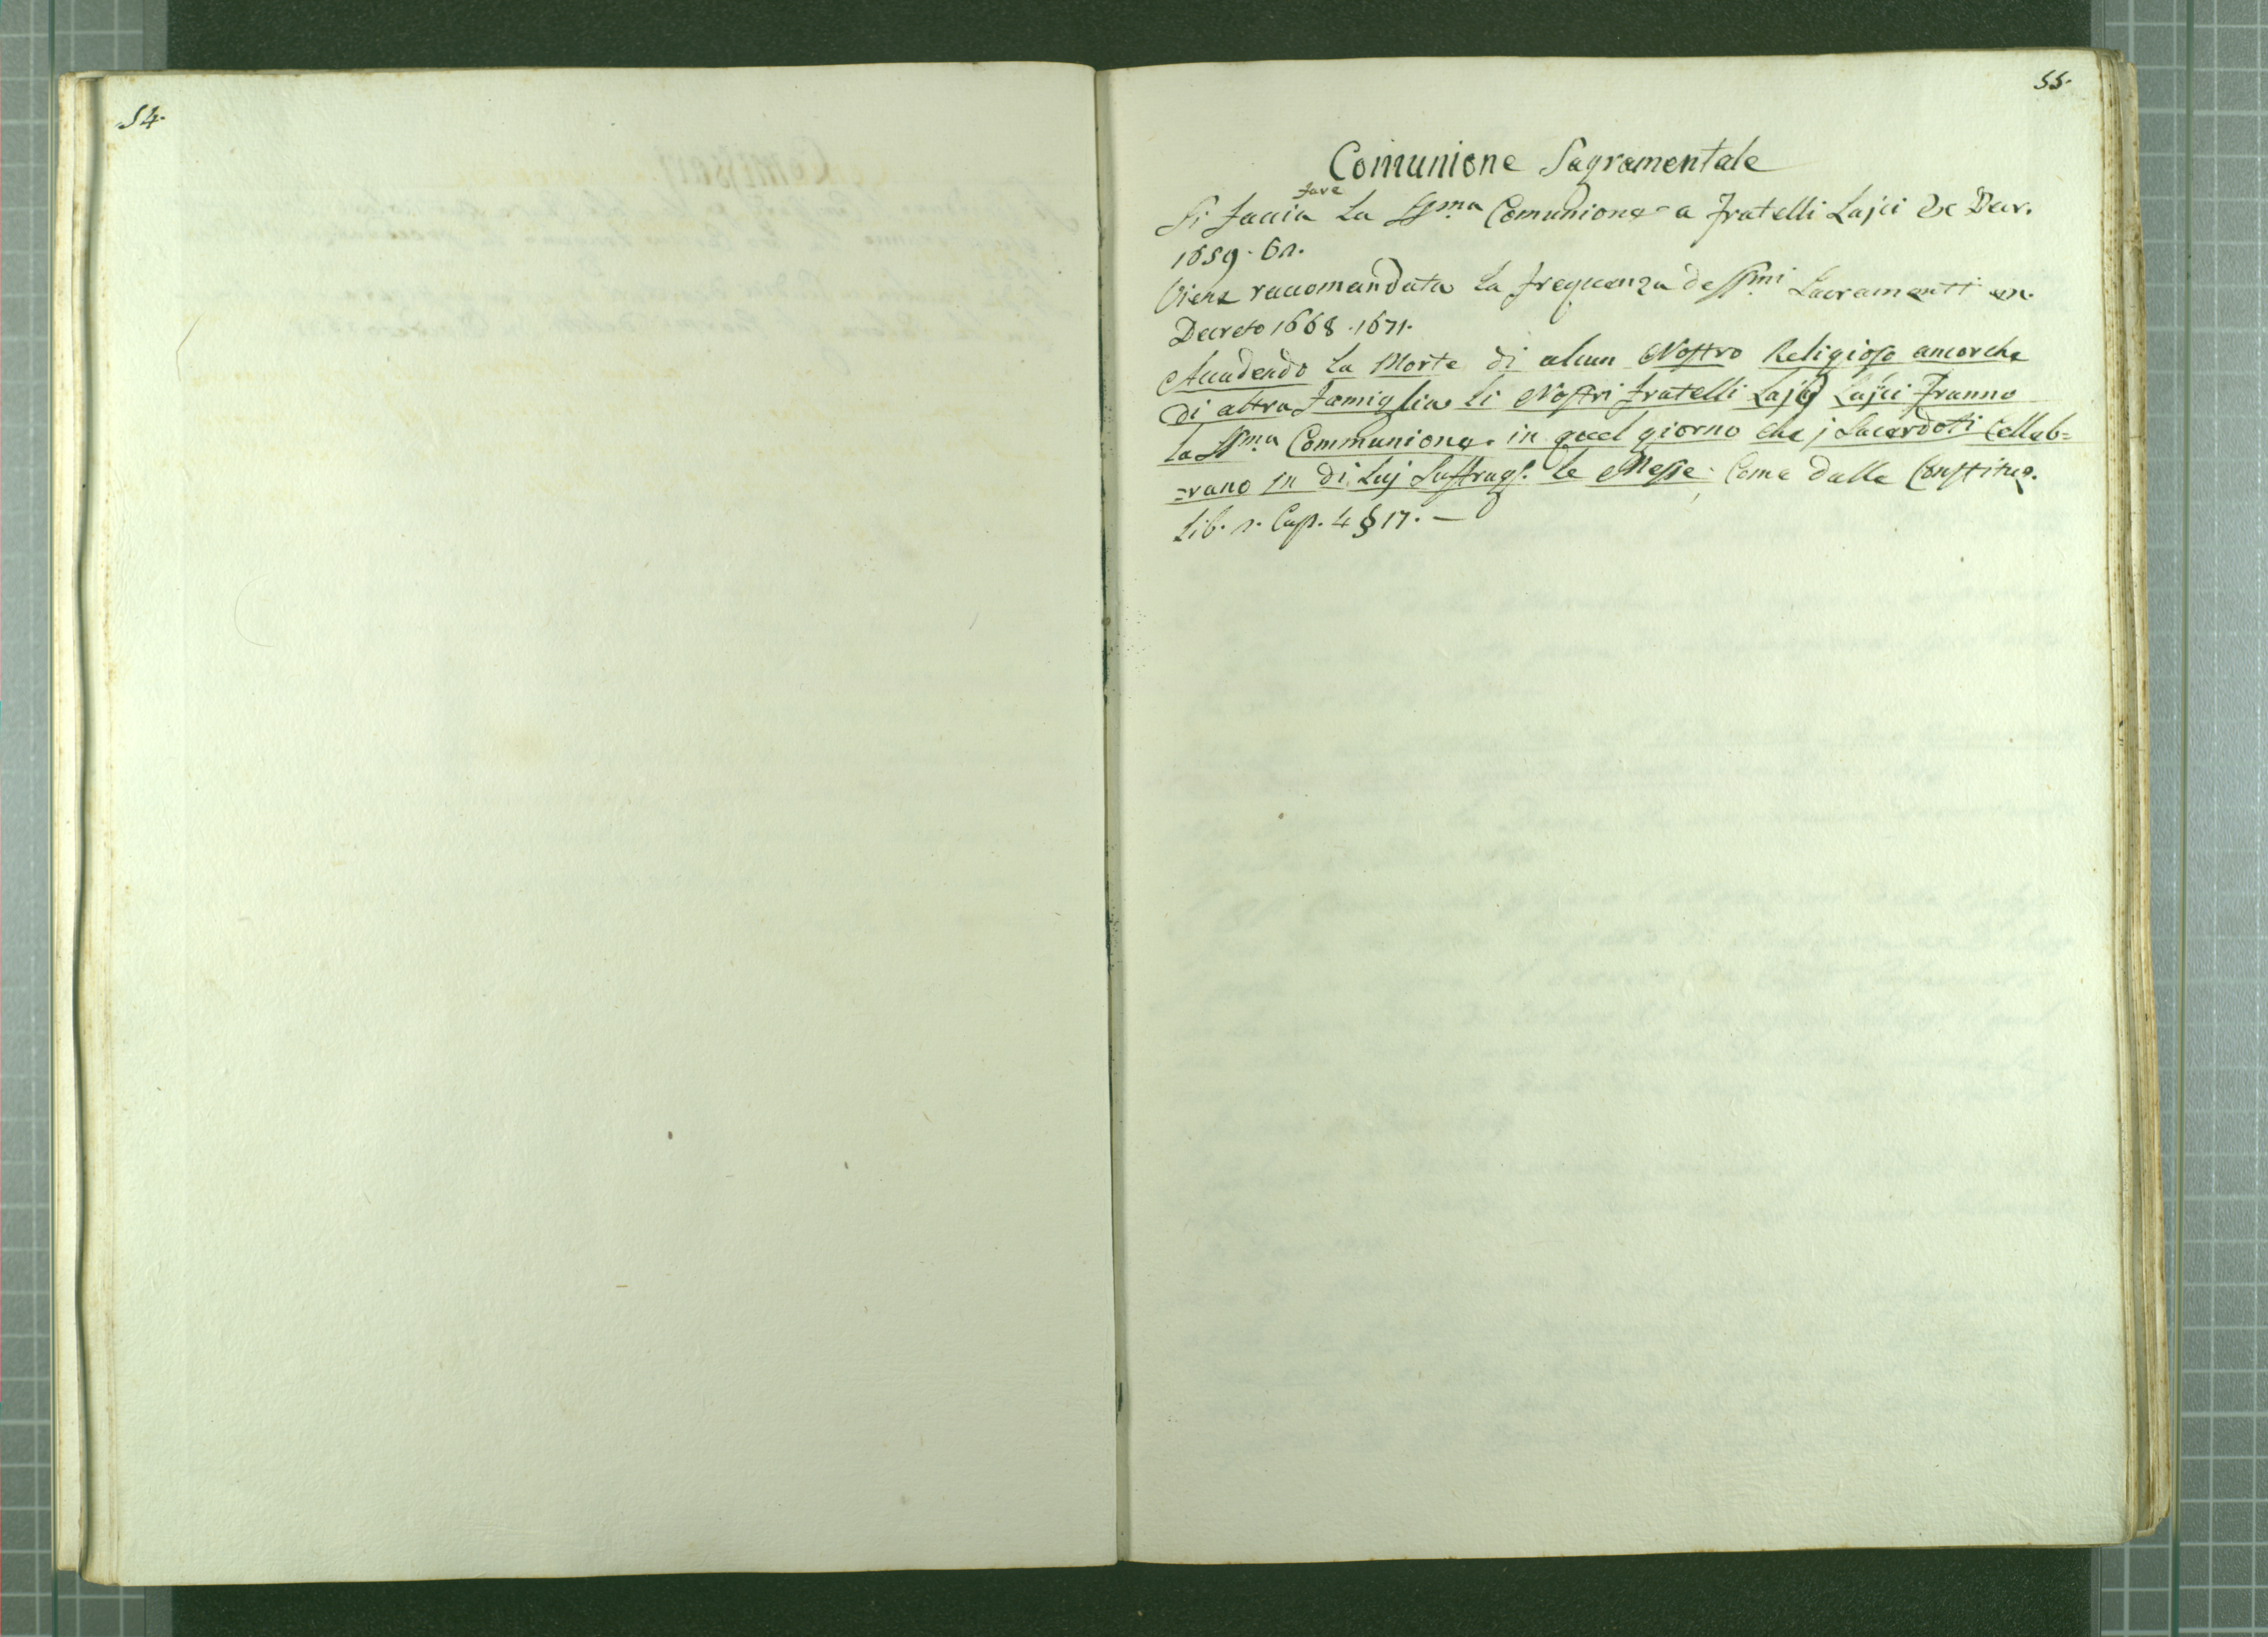 54.
55.
Comunione Sagramentale
fare
Si faccia la SSma Comunione a fratelli Lajci Ex Decr.
1659.
Viene raccomandata la frequenza de SSmi Sacramenti
Decreto 1668. 1671.
Accadendo la Morte di alcun Nostro Religioso ancorche
di altra Famiglia li Nostri fratelli Lajci franno
la SSma Communione. in quel giorno che j Sacerdoti Celleb=
=rano in di luj Suffrag. le Messe. Come dalle Constituz.
Lib. Cap. 4 § 17. —